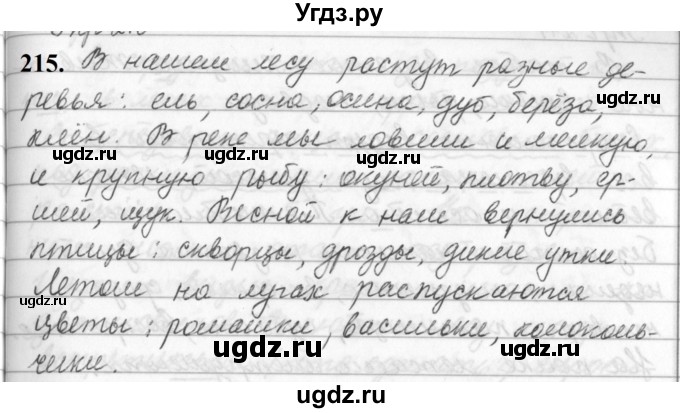 Угдз.ру
215. В нашем лесу растут разные де-
ревья: ель, сосна, осина, дуб, берёза,
клён. В реке мы ловили и мелкую,
и крупную рыбу: окуней, плотву, ер-
шей, щук. Весной к нам вернулись
птицы: скворцы, дрозды, дикие утки.
Летом на лугах распускаются
цветы: ромашки, васильки, колоколь-
чики.
ugdz.ru
ugdz.ru
ugdz.ru
ugdz.ru
ugdz.ru
ugdz.ru
ugdz.ru
ugdz.ru
ugdz.ru
ugdz.ru